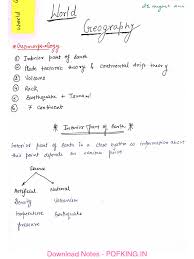 World
World
Geography
* Geomorphology
① Interior part of Earth
② Plate tectonic theory & Continental drift theory
③ Volcano
④ Rock
⑤ Earthquake + Tsunami
⑥ 7 Continent
* Interior Part of Earth
Interior part of Earth is a
this point depends on various
Source
Artificial Natural
Density Volcanism
temperature Earthquake
pressure
Download Notes - PDFKING.IN